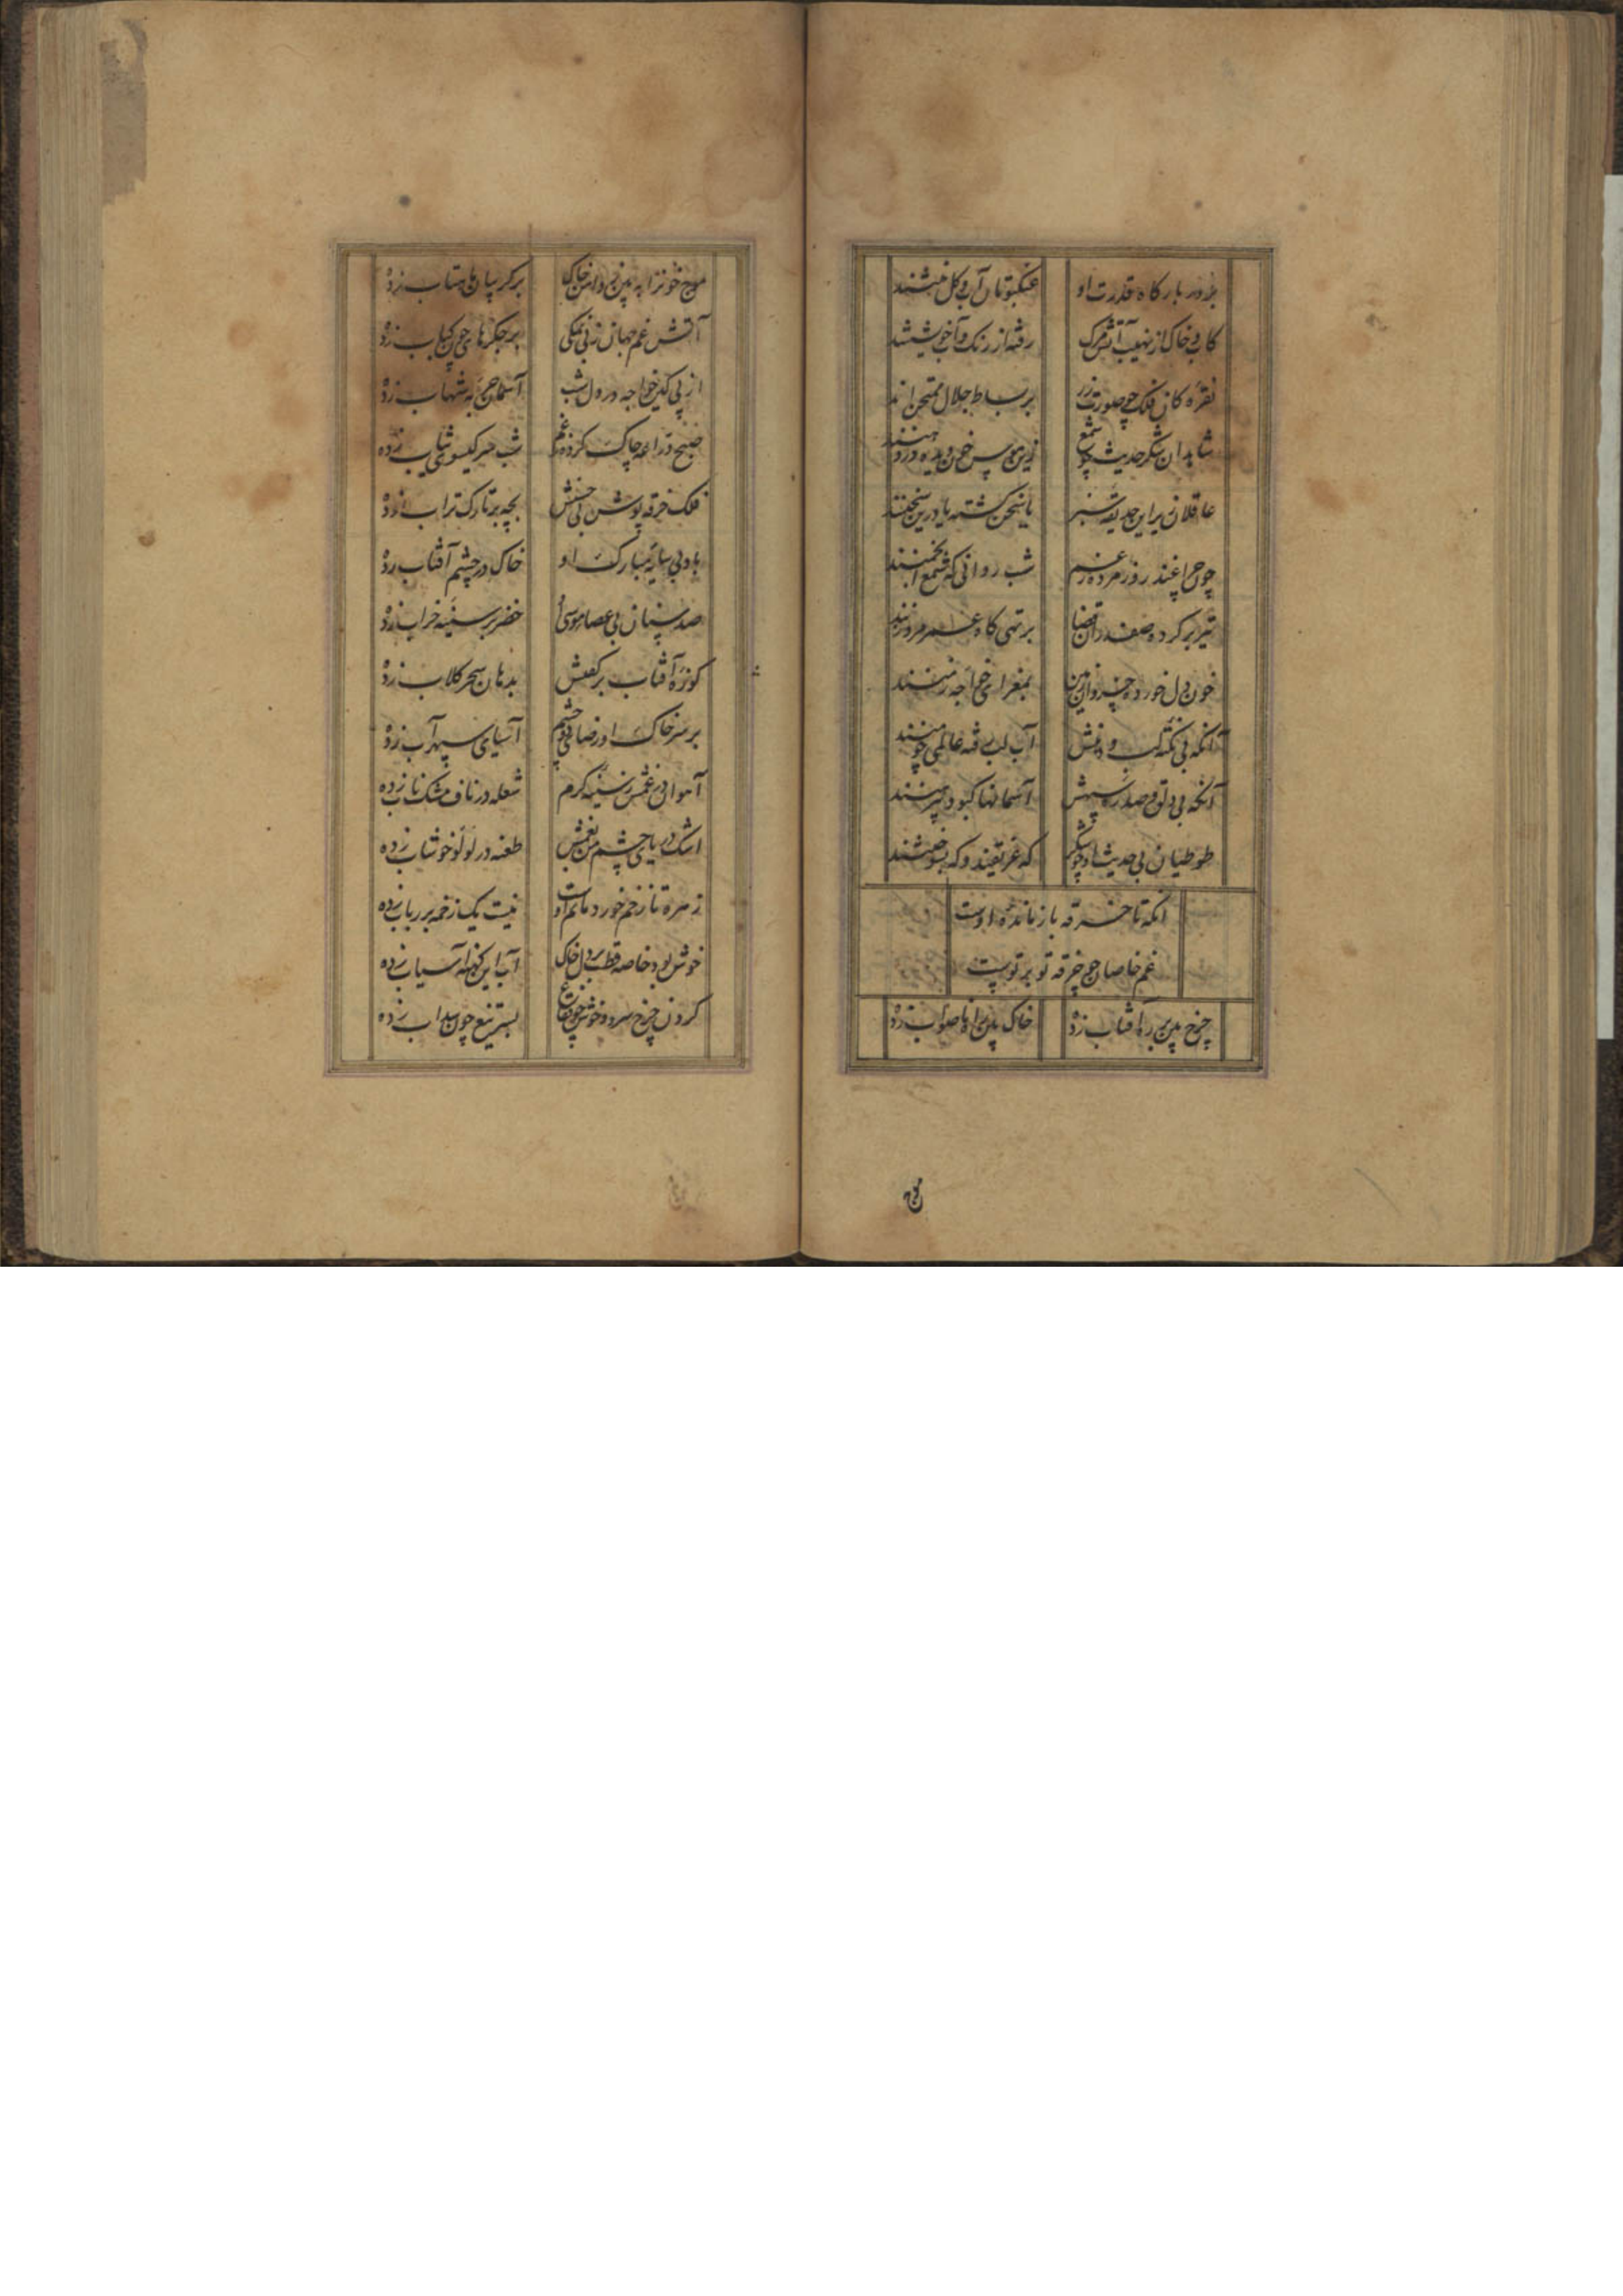 بر در بارگاه قدرت او عنکبوتان آب و گل تنند
کاب و خاک از نهیب آتش مرگ رفته از رنگ و آب خویشتنند
نقره کان فلک چو صورت زر بر بساط جلال ممتحن اند
شاهدان شکر حدیث چو شمع
عاقلان بر این حدیقه سبز یا سخن گشته یا درین سخنند
چو چراغند روز مرده ز غم شب روانی که شمع انجمنند
تیر بر کرده صفدران قضا بر تهی گاه عمر مرد زنند
خون دل خورده خسروان زمین
آنکه بی نکته گب و دنبش آب لب رفته عالمی
آنکه بی دلق و صدره سیهش آسمانها کبود پیرهنند
طوطیان بی حدیث او چو شکر که غریقند و که بسوختنند
آنکه تا خرقه باز مانده اوست
غم خاصان چو خرقه تو بر توست
چرخ بین بر سر آفتاب زده خاک بین راه ناصواب زده
موج خونرا به بین ز دامن خاک بر گریبان ماهتاب زده
آتش غم جهان ز بی نمکی بر جگرهای چون کباب زده
از پی کین خواجه در دل شب آسمان به شهاب زده
صبح دراعه چاک کرده ز غم شب سر گیسوی بتاب زده
فلک خرقه پوش بی جنبش بچه بر تارک تراب زده
باد بی سایه مبارک او خاک در چشم آفتاب زده
صد سنان بی عصا موسی او خضر بر سینه خراب زده
کوزه آفتاب بر کفش بدهان سحر گلاب زده
بر سر خاک او ز صافی چشم آسیای سپهر آب زده
آهوان در غمش ز سینه گرم شعله در ناف مشک ناب زده
اشک دریای چشم من بغمش طعنه در لولو خوشاب زده
زهره تا زخم خورد ماتم اوست نیست یک زخمه بر رباب زده
خوش بود خاصه قطب بر دل خاک آب این کهنه آسیاب زده
گردن چرخ سرد و خوش چو فقاع بستر تیغ چون سداب زده